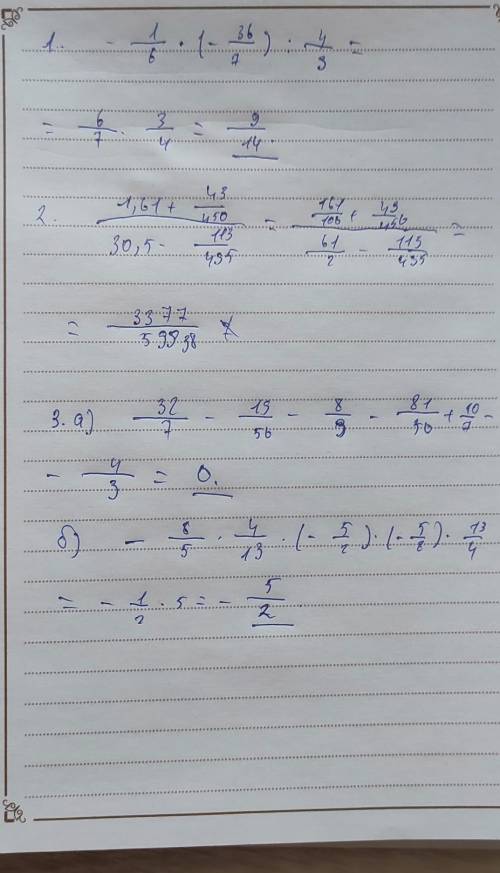 1. - 1/6 · (- 36/7) : 4/9 =
= 6/7 · 3/4 = 9/14.
2. (1,61 + 43/450) / (30,5 - 113/495) = (161/100 + 43/450) / (61/2 - 113/495) =
= 3377/59938
3. а) 32/7 - 19/50 - 8/9 - 81/50 + 10/7 -
- 4/3 = 0.
б) - 8/5 · 4/13 · (- 5/2) · (- 5/8) · 13/4
= - 1/2 · 5 = - 5/2